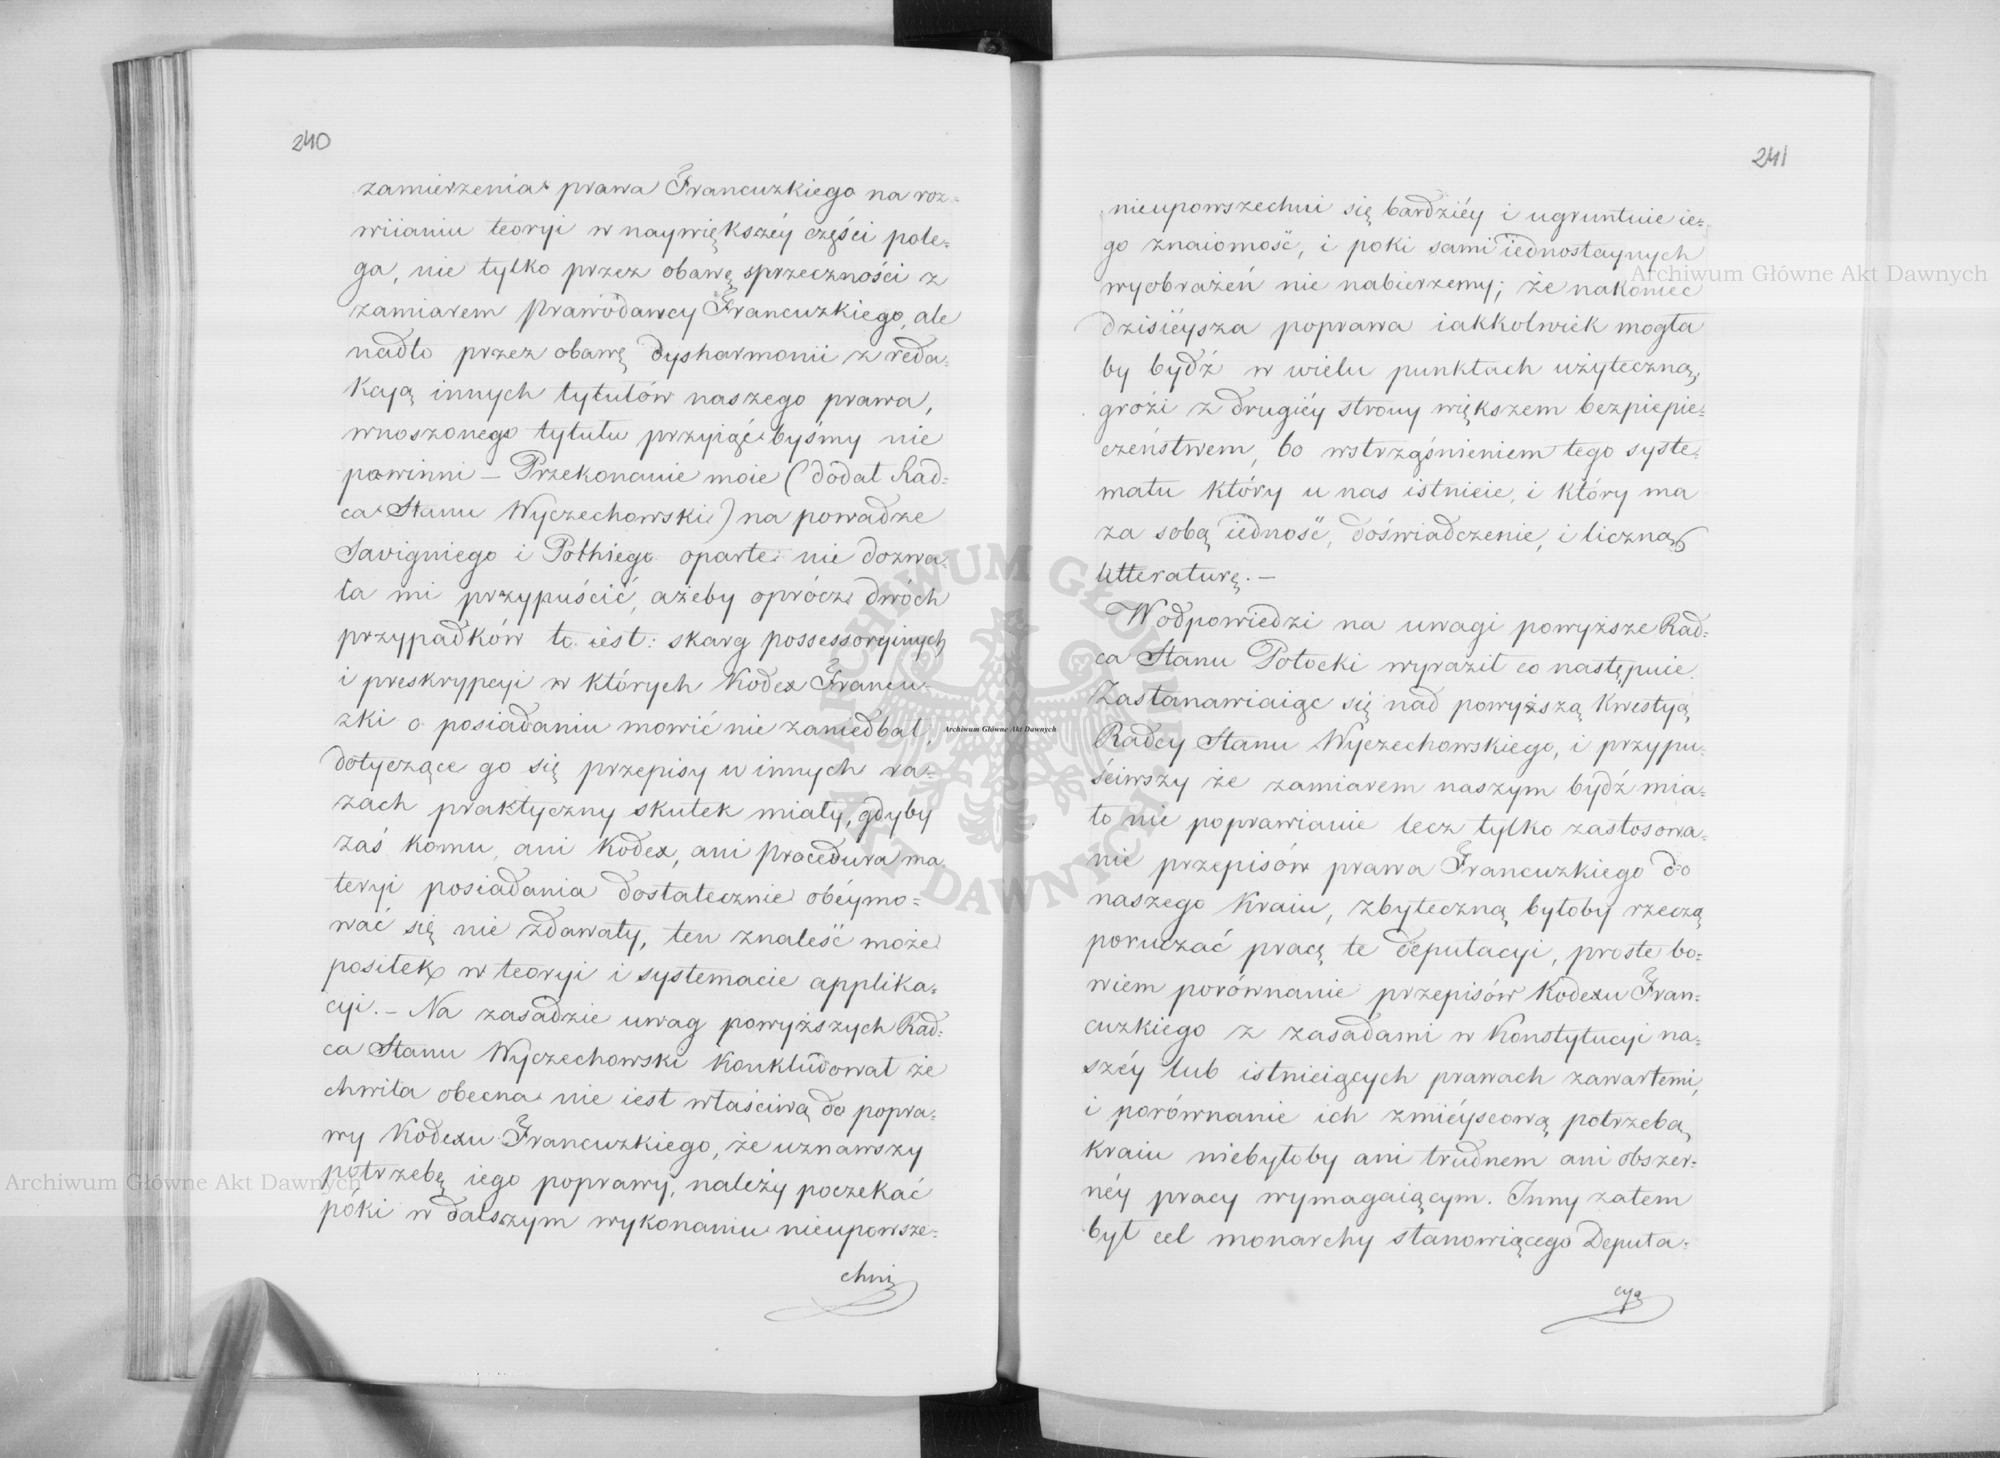 240
zamierzenia prawa Francuzkiego na roz=
wiianiu teoryi w naywiększéy części pole=
ga, nie tylko przez obawę sprzeczności z
zamiarem prawodawcy Francuzkiego, ale
nadto przez obawę dysharmonii z reda=
kcyą innych tytułów naszego prawa,
wnoszonego tytułu przyiąć byśmy nie
powinni – Przekonanie moie (dodał Rad=
ca Stanu Wyczechowski) na powadze
Savigniego i Pothiego oparte nie dozwa=
la mi przypuścić, ażeby oprócz dwóch
przypadków to iest: skarg possessoryinych
i preskrypcyi w których Kodex Francu=
zki o posiadaniu mowić nie zaniedbał,
dotyczące go się przepisy w innych ra=
zach praktyczny skutek miały, gdyby
zaś komu, ani Kodex, ani procedura ma
teryi posiadania dostatecznie obéymo=
wać się nie zdawały, ten znaleść może
positek w teoryi i systemacie applika=
cyi. – Na zasadzie uwag powyższych Rad=
ca Stanu Wyczechowski konkludował że
chwila obecna nie iest właściwą do popra=
wy Kodexu Francuzkiego, że uznawszy
potrzebę iego poprawy, należy poczekać
póki w dalszym wykonaniu nieupowsze=
chni
241
nieupowszechni się bardziéy i ugruntnie ie=
go znaiomość, i poki sami iednostaynych
wyobrażeń nie nabierzemy; że nakoniec
dzisiéysza poprawa iakkolwiek mogła
by bydź w wielu punktach użyteczną,
grozi z drugiéy strony większem bezpiepie=
czeństwem, bo wstrząśnieniem tego syste=
matu który u nas istnieie, i który ma
za sobą iedność, doświadczenie, i liczną
litteraturę. –
W odpowiedzi na uwagi powyższe Rad=
ca Stanu Potocki wyraził co następuie.
Zastanawiaiąc się nad powyższą kwestyą
Radcy Stanu Wyczechowskiego, i przypu=
ściwszy że zamiarem naszym bydź mia=
ło nie poprawianie lecz tylko zastosowa=
nie przepisów prawa Francuzkiego do
naszego Kraiu, zbyteczną byłoby rzeczą
poruczać pracę te deputacyi, proste bo=
wiem porównanie przepisów Kodexu Fran=
cuzkiego z zasadami w Konstytucyi na=
széy lub istnieiących prawach zawartemi,
i porównanie ich zmiéyscową potrzebą
kraiu niebyłoby ani trudnem ani obszer=
néy pracy wymagaiącym. Inny zatem
był cel monarchy stanowiącego Deputa=
cyą
Archiwum Główne Akt Dawnych
Archiwum Główne Akt Dawnych
Archiwum Główne Akt Dawnych
ARCHIWUM GŁÓWNE AKT DAWNYCH